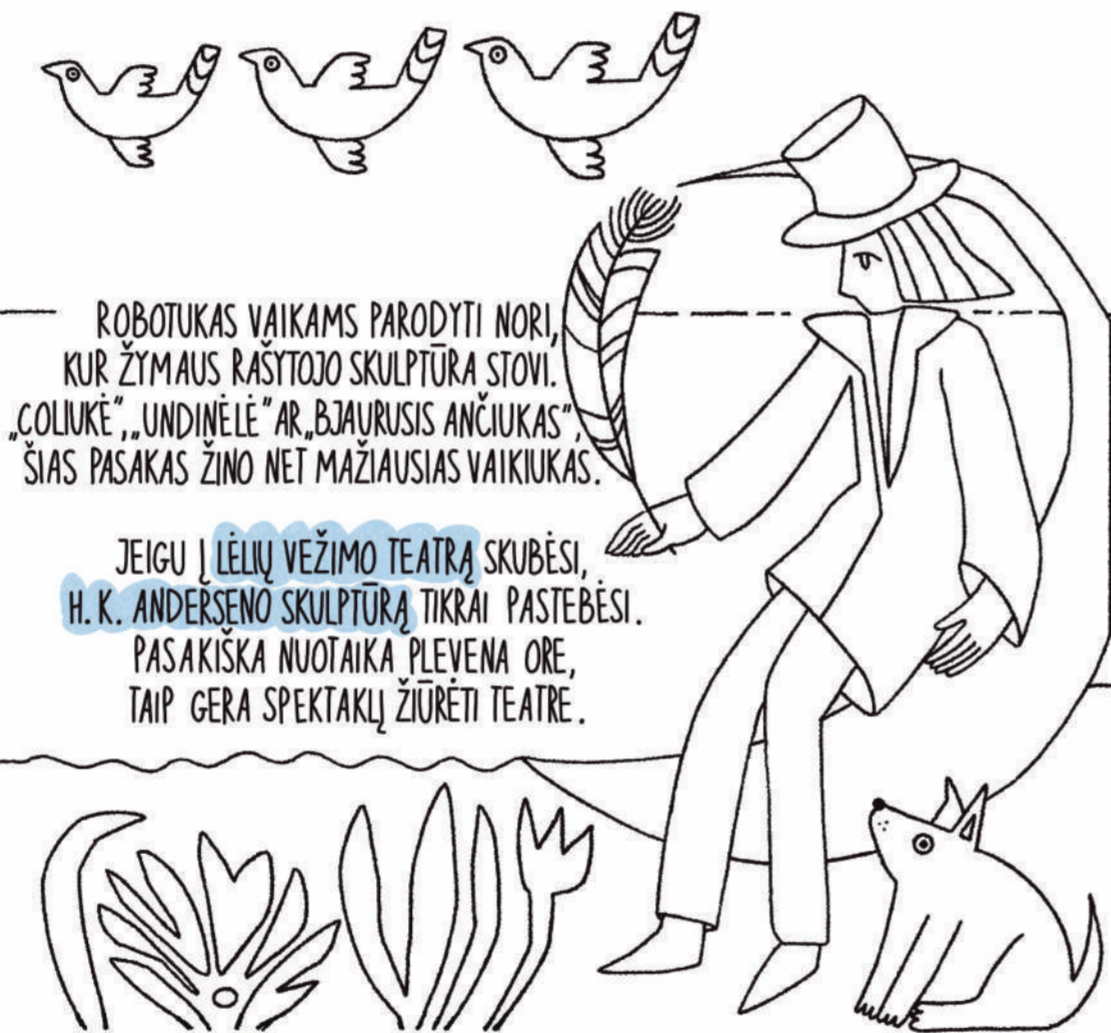 ROBOTUKAS VAIKAMS PARODYTI NORI,
KUR ŽYMAUS RAŠYTOJO SKULPTŪRA STOVI.
„COLIUKĖ", „UNDINĖLĖ" AR „BJAURUSIS ANČIUKAS",
ŠIAS PASAKAS ŽINO NET MAŽIAUSIAS VAIKIUKAS.
JEIGU Į LĖLIŲ VEŽIMO TEATRĄ SKUBĖSI,
H. K. ANDERSENO SKULPTŪRĄ TIKRAI PASTEBĖSI.
PASAKIŠKA NUOTAIKA PLEVENA ORE,
TAIP GERA SPEKTAKLĮ ŽIŪRĖTI TEATRE.